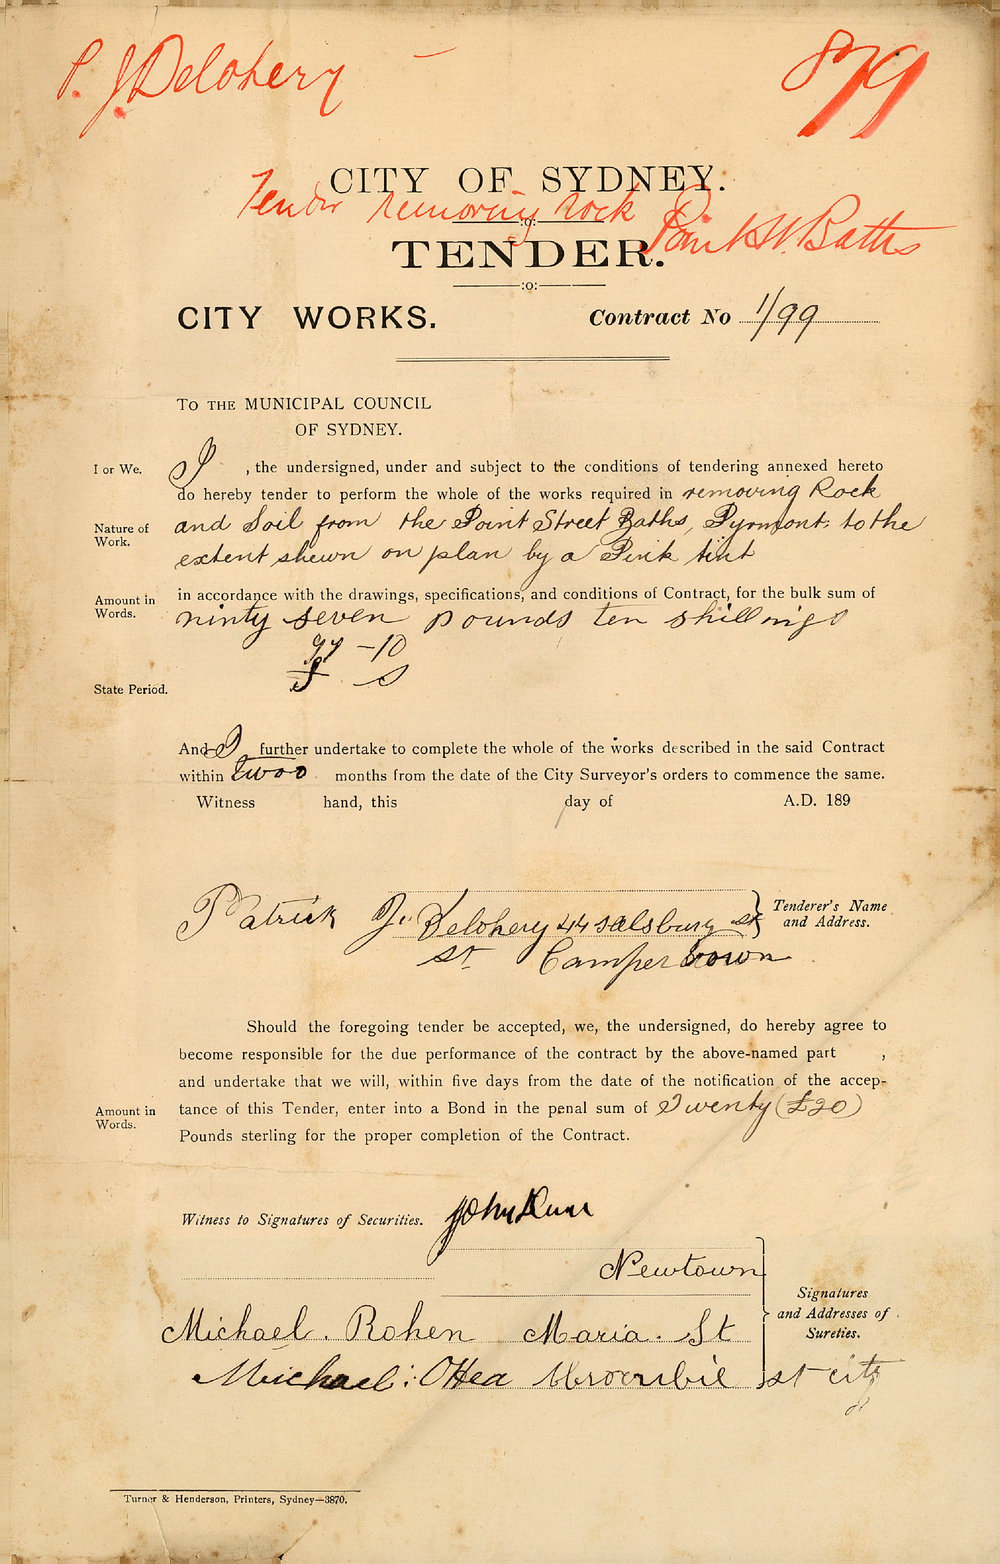 P. J. Delohery
879
CITY OF SYDNEY.
Tender Removing Rock Point St. Baths
:o:
TENDER.
:o:
CITY WORKS.
Contract No 1/99
To the MUNICIPAL COUNCIL
OF SYDNEY.
I or We. I , the undersigned, under and subject to the conditions of tendering annexed hereto
do hereby tender to perform the whole of the works required in removing Rock
Nature of Work. and Soil from the Point Street Baths, Pyrmont, to the
extent shewn on plan by a Pink tint
Amount in Words. in accordance with the drawings, specifications, and conditions of Contract, for the bulk sum of
ninty seven pounds ten shillings
97 - 10
£ s
State Period.
And I further undertake to complete the whole of the works described in the said Contract
within twoo months from the date of the City Surveyor's orders to commence the same.
Witness hand, this day of A.D. 189
Patrick J. Delohery 44 Salsbury st
Tenderer's Name and Address.
st Camperdown
Should the foregoing tender be accepted, we, the undersigned, do hereby agree to
become responsible for the due performance of the contract by the above-named part ,
and undertake that we will, within five days from the date of the notification of the accep-
Amount in Words. tance of this Tender, enter into a Bond in the penal sum of Twenty (£20)
Pounds sterling for the proper completion of the Contract.
Witness to Signatures of Securities. John
Newtown
Signatures and Addresses of Sureties.
Michael. Rohen Maria. St
Michael: OHea st city
Turner & Henderson, Printers, Sydney—3870.